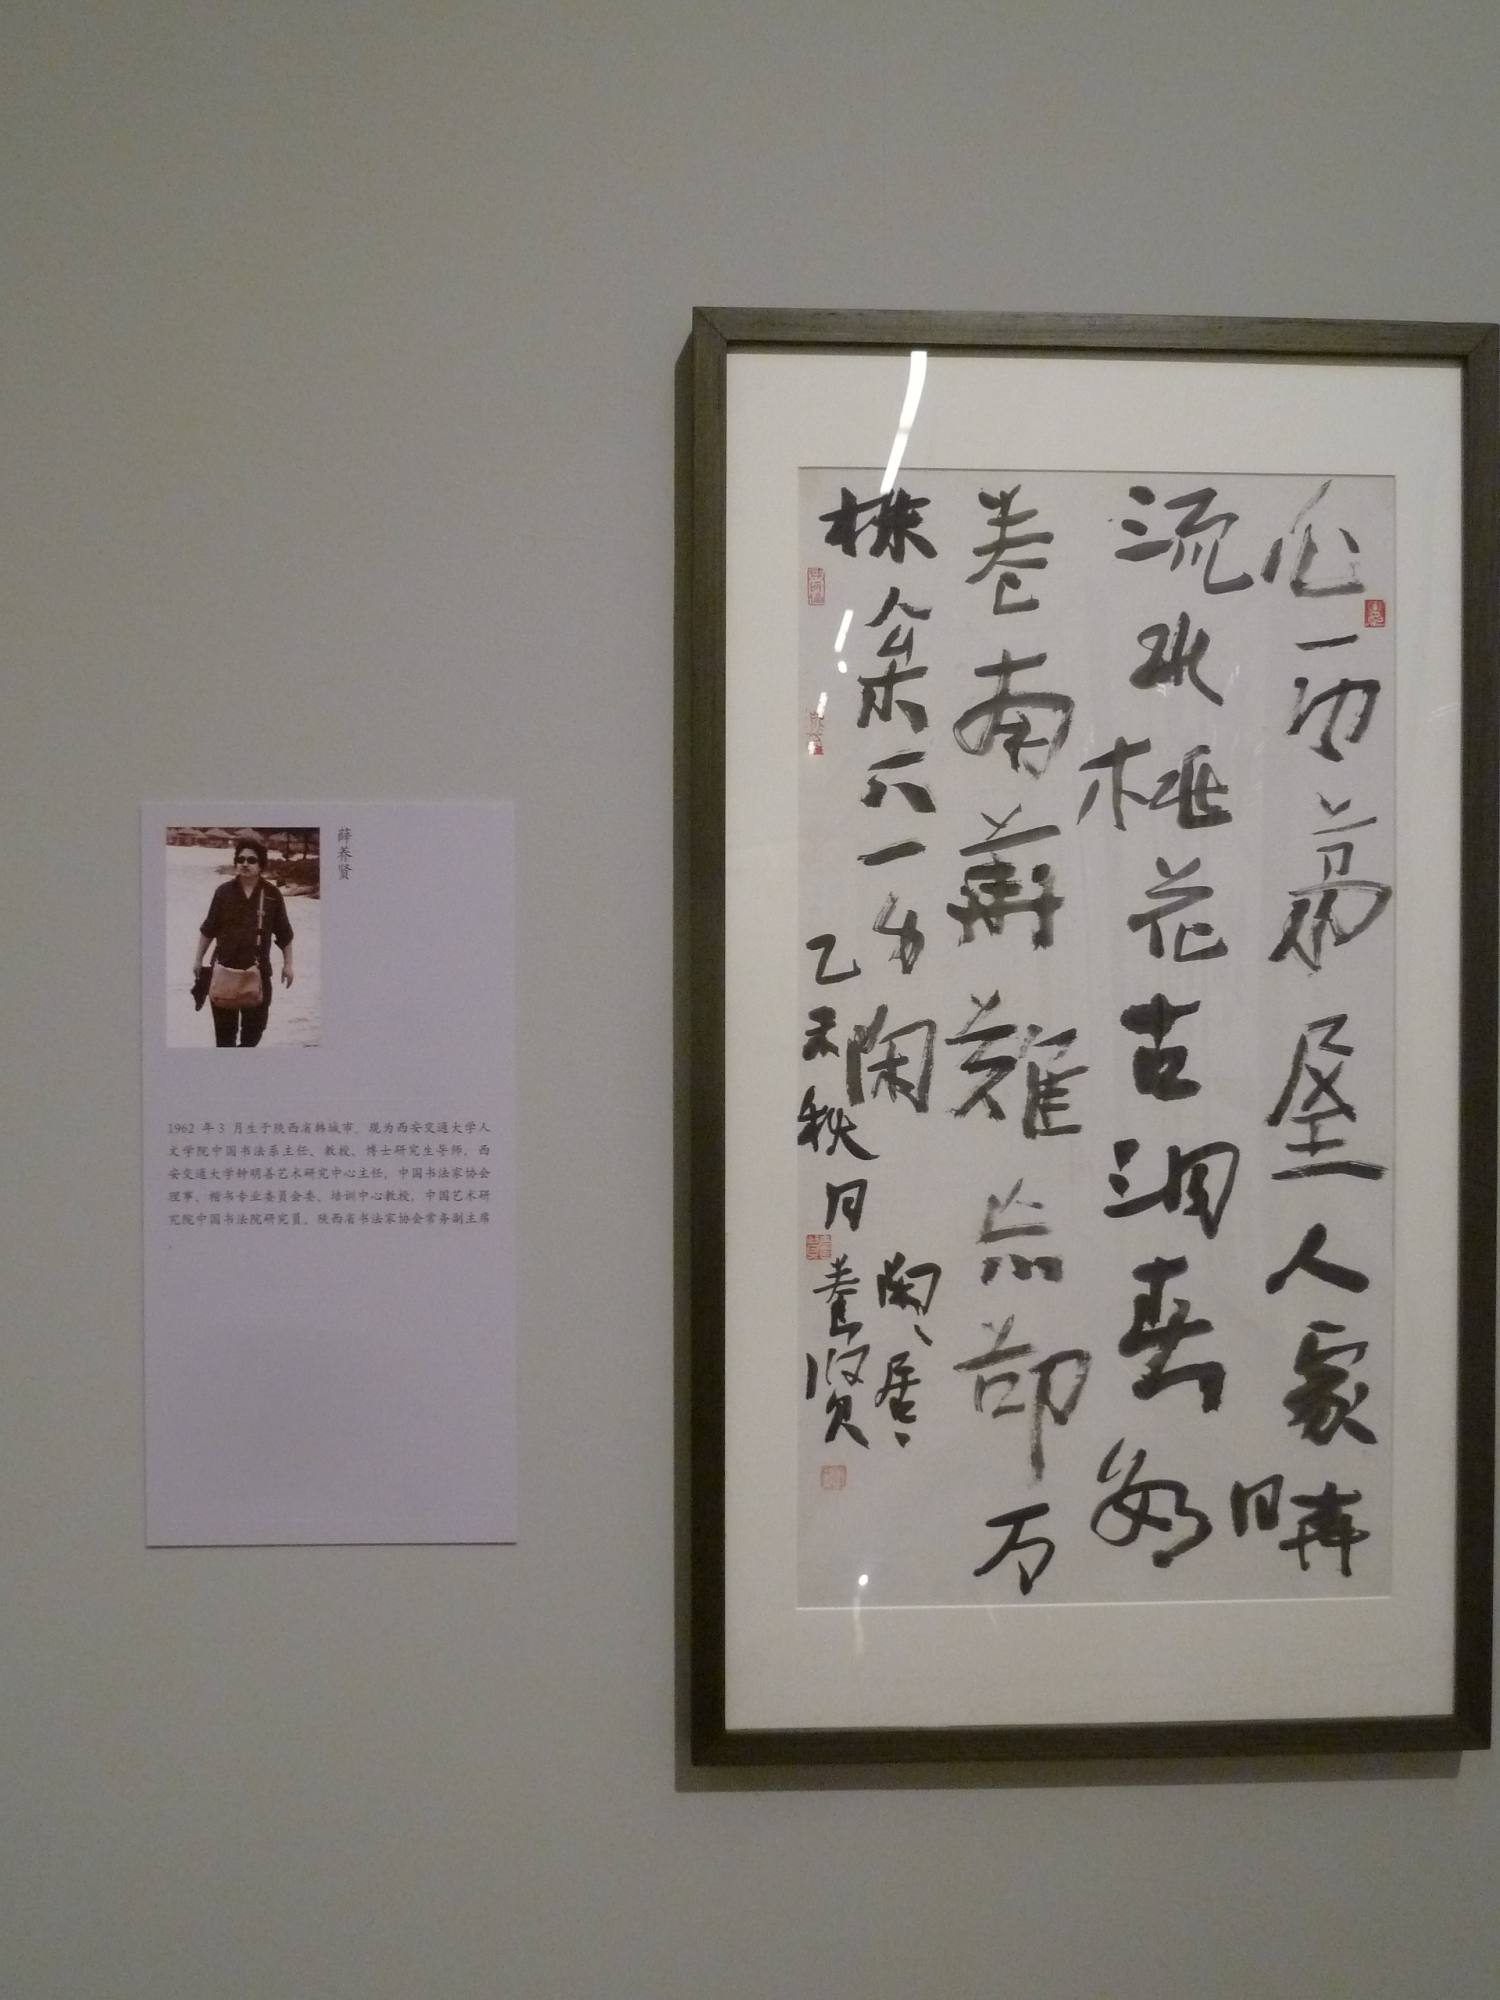 薛养贤
1962 年 3 月生于陕西省韩城市。现为西安交通大学人
文学院中国书法系主任、教授、博士研究生导师，西
安交通大学钟明善艺术研究中心主任，中国书法家协会
理事、楷书专业委员会委、培训中心教授，中国艺术研
究院中国书法院研究员，陕西省书法家协会常务副主席
茅屋人家曉
流水桃花古洞春數
卷南華難忘却万
株松下一身閑
乙未秋月
閑閑居
養賢